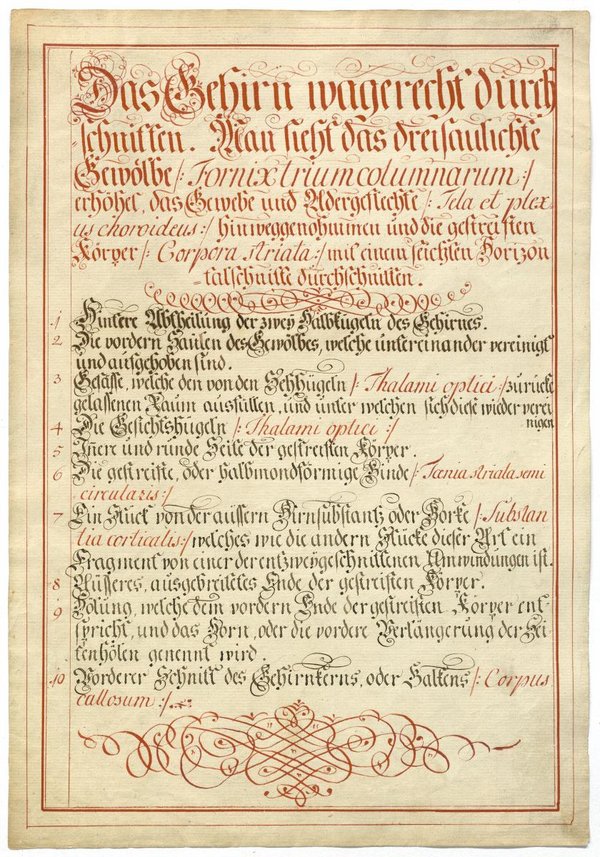 Das Gehirn wagerecht durch
schnitten. Man sieht das dreisäulichte
Gewölbe /: Fornix trium columnarum :/
erhöhet, das Gewebe und Adergeflechte /: Tela et plex
us choroideus :/ hinweggenohmmen und die gestreiften
Körper /: Corpora striata :/ mit einem seichten Horizon
talschnitte durchschnitten.
1 Hintere Abtheilung der zwey Halbkugeln des Gehirnes.
2 Die vordern Säulen des Gewölbes, welche untereinander vereinigt
und aufgehoben sind.
3 Gefässe, welche den von den Sehhügeln /: Thalami optici :/ zurück
gelassenen Raum ausfüllen, und unter welchen sich diese wieder verei
nigen
4 Die Gesichtshügeln /: Thalami optici :/
5 Inere und runde Seite der gestreiften Körper.
6 Die gestreifte, oder halbmondförmige Binde /: Tænia striata semi
circularis :/
7 Ein Stück von der äussern Hirnsubstantz oder Borke /: Substan
tia corticalis :/ welches wie die andern Stücke dieser Art ein
Fragment von einer der entzweygeschnittenen Umwindungen ist.
8 Aüsseres, ausgebreitetes Ende der gestreiften Körper.
9 Hölung, welche dem vordern Ende der gestreiften Körper ent
spricht, und das Horn, oder die vordere Verlängerung der Sei
tenhölen genennt wird.
10 Vorderer Schnitt des Gehirnkerns, oder Balkens /: Corpus
callosum :/